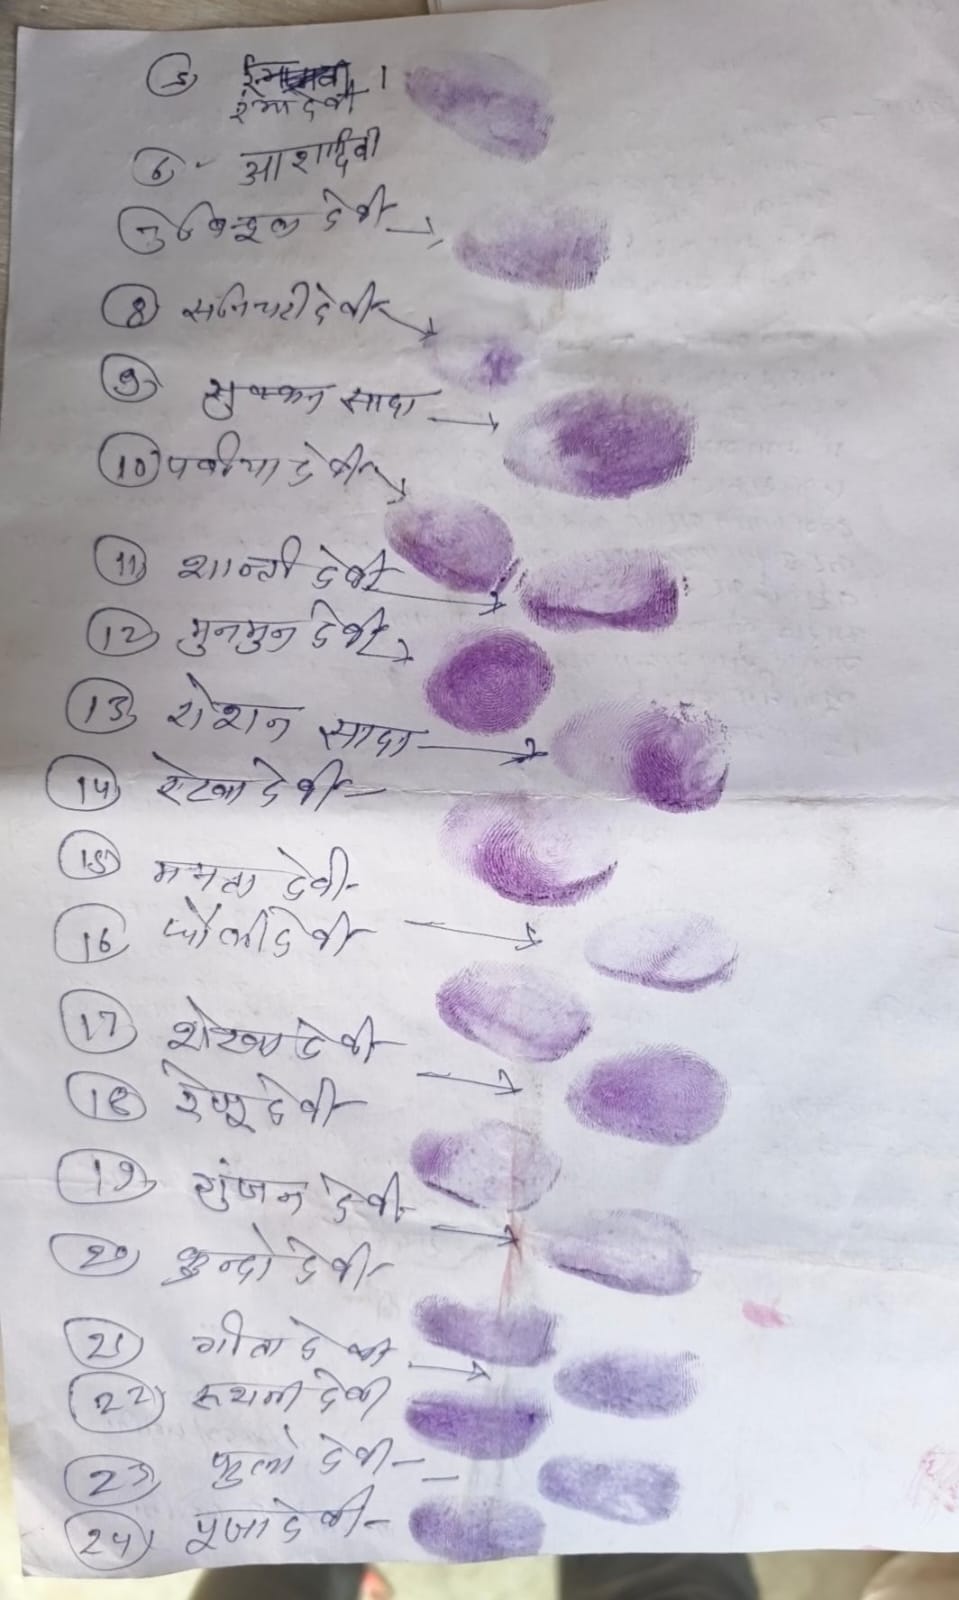 5)
रंभा देवी
6 - आशा देवी
7) बिन्दुल देवी
8 सनिचरी देवी
9 सुक्कन सादा
10 पवीया देवी
11 शान्ती देवी
12 मुनमुन देवी
13 रोशन सादा
14 देवी
15 ममता देवी
16 देवी
17 देवी
18 रेणू देवी
19 गुंजन देवी
20 कुन्दो देवी
21 गीता देवी
22 देवी
23 फुलो देवी
24 पूजा देवी